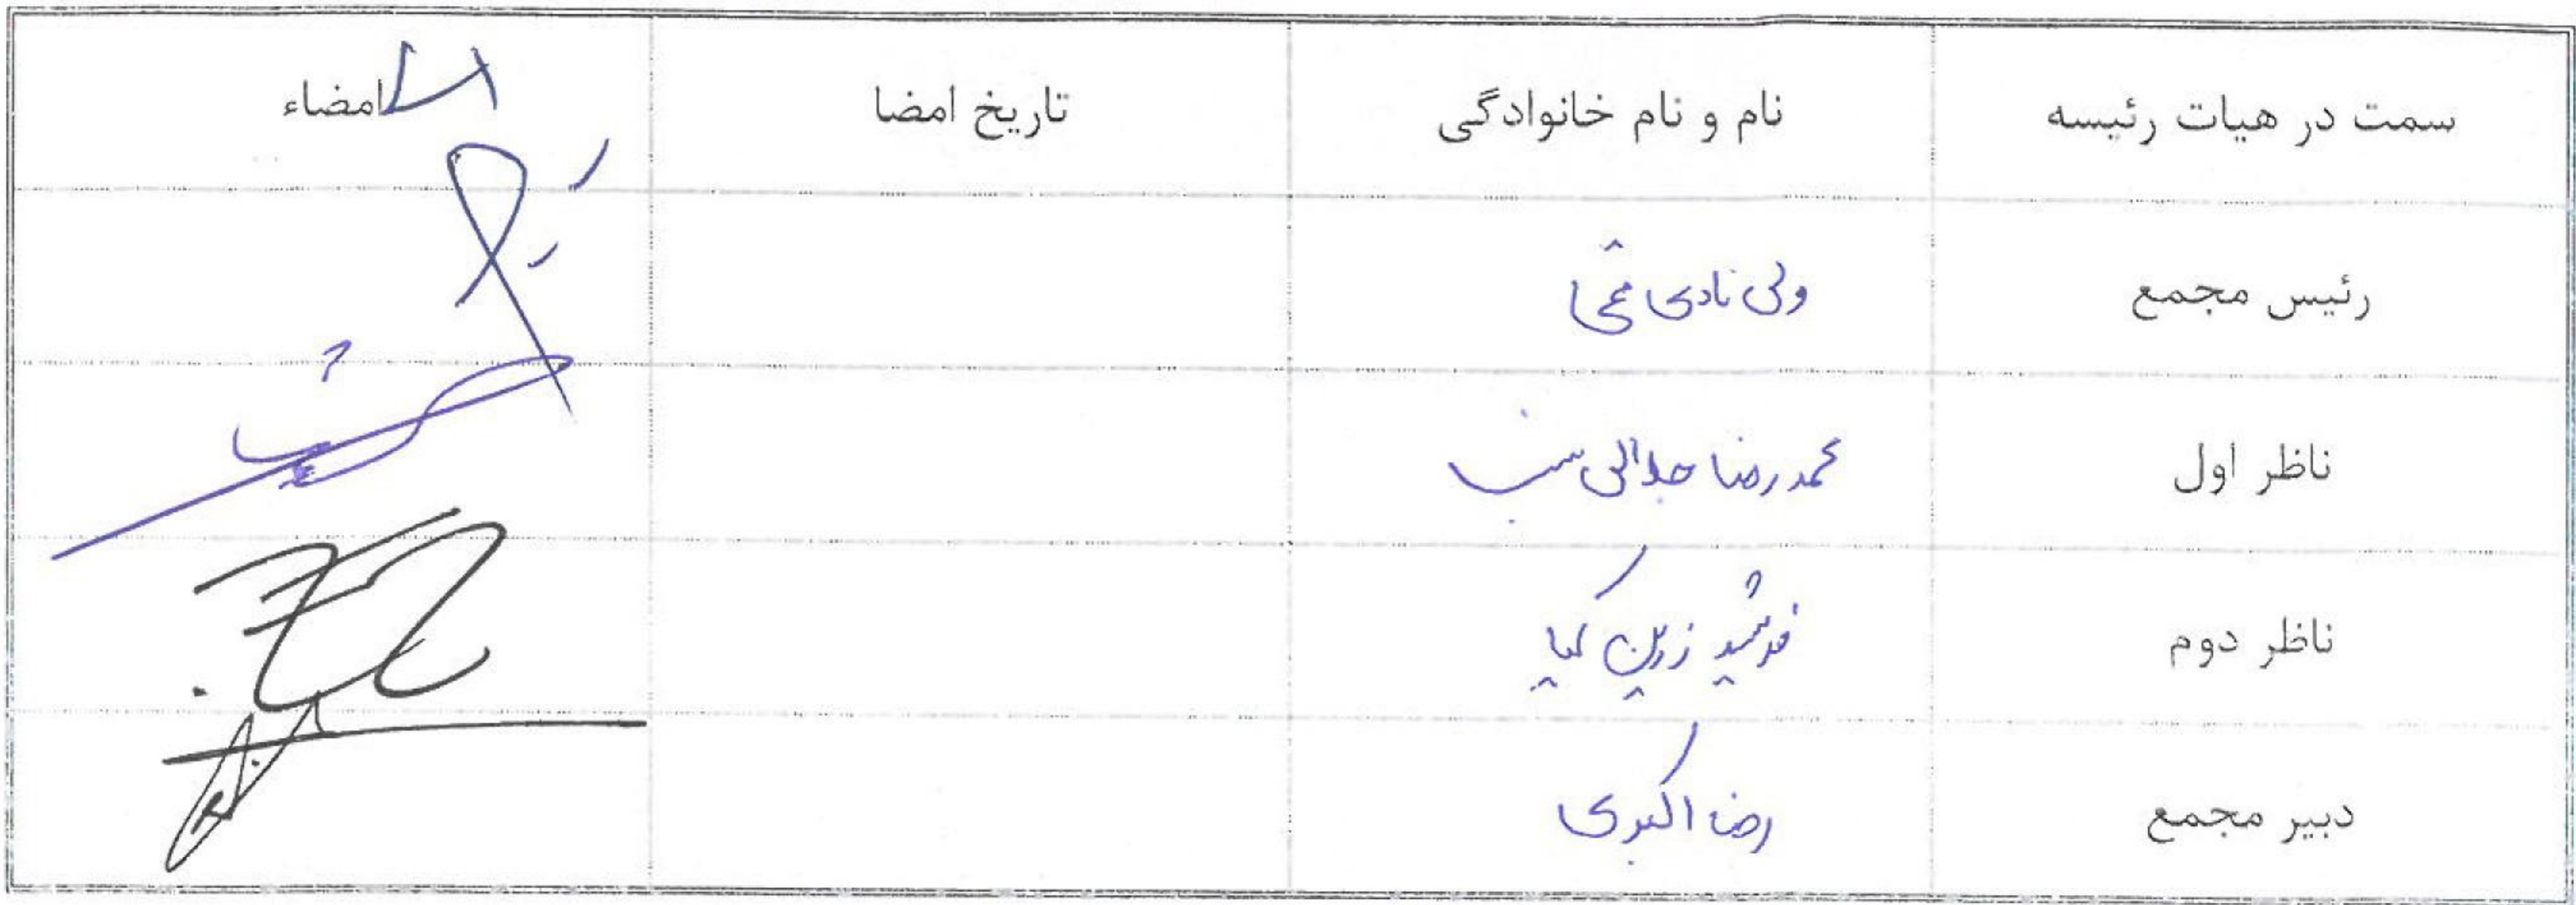 سمت در هیات رئیسه نام و نام خانوادگی تاریخ امضا امضاء
رئیس مجمع ولی نادی قمی
ناظر اول محمدرضا جلالی نسب
ناظر دوم فرشید زرین کیا
دبیر مجمع رضا اکبری